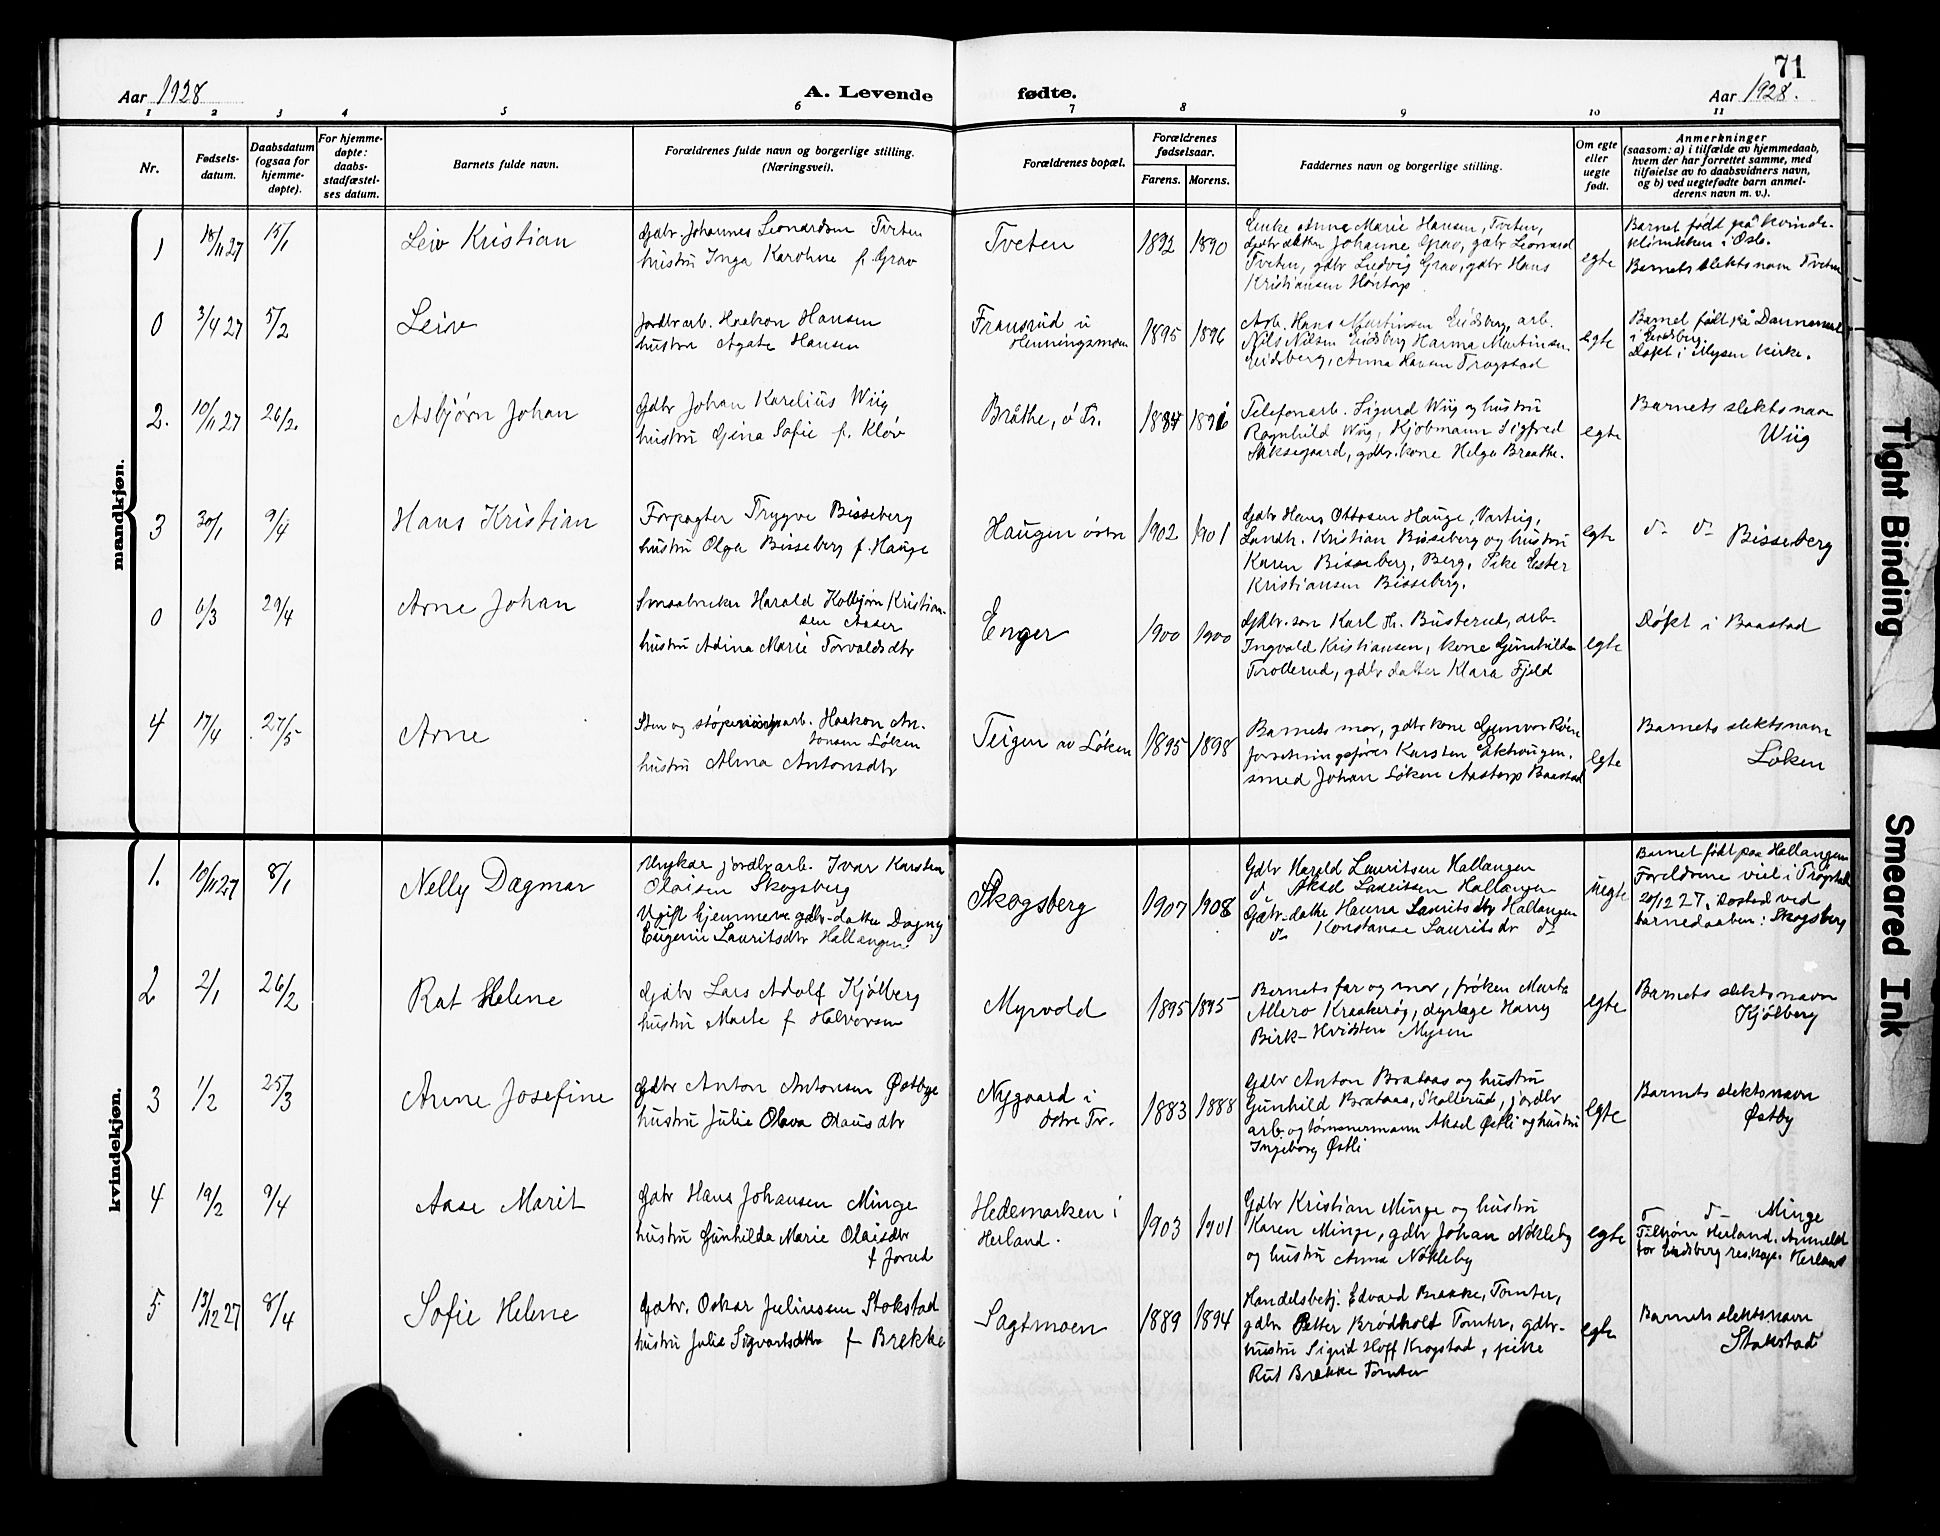 71
Aar 1928
A. Levende
fødte.
Aar 1928.
1 2 3 4 5 6 7 8 9 10 11
Nr.
Fødsels-
datum.
Daabsdatum
(ogsaa for
hjemme-
døpte).
For hjemme-
døpte:
daabs-
stadfæstel-
ses datum.
Barnets fulde navn.
Forældrenes fulde navn og borgerlige stilling.
(Næringsvei).
Forældrenes bopæl.
Forældrenes
fødselsaar.
Farens. Morens.
Faddernes navn og borgerlige stilling.
Om egte
eller
uegte
født.
Anmerkninger
(saasom: a) i tilfælde av hjemmedaab,
hvem der har forrettet samme, med
tilføielse av to daabsvidners navn,
og b) ved uegtefødte barn anmel-
derens navn m. v.).
mandkjøn.
1
18/11 27
15/1
Leiv Kristian
Gdbr. Johannes Leonardsen Tveten
hustru Inga Karoline f. Grav
Tveten
1892 1890
Enke Anne Marie Hansen, Tveten,
Johanne Grav, gdbr Leonard
Tveten, gdbr Ludvig Grav, gdbr Hans
Kristiansen Hontorp
egte
Barnet født på Kvinde-
klinikken i Oslo.
Barnets slektsnavn Tveten
0
3/4 27
5/2
Leiv
Jordbr arb. Haakon Hansen
hustru Agate Hansen
Fransrud u
Henningsmoen
1895 1896
Arb. Hans Martinsen Eidsberg, arb.
Nils Nilsen Eidsberg Harma Martinsen
Eidsberg, Anna Hansen Trøgstad
egte
Barnet født på Dannemark
i Eidsberg.
Døpt i Mysen kirke.
2.
10/11 27
26/2.
Asbjørn Johan
Gdbr Johan Karelius Wiig
hustru Gina Sofie f. Kløv
Bråthe, ø Tr.
1887 1891
Telefonarb. Sigurd Wiig og hustru
Ragnhild Wiig, Kjøbmann Sigfred
gdbr. kone Helga Braathe.
egte
Barnets slektsnavn
Wiig
3
30/1
9/4
Hans Kristian
Forpagter Trygve Bisseberg
hustru Olga Bisseberg f. Hauge
Haugen østre
1902 1901
Gdbr Hans Ottosen Hauge, Varteig,
Landh. Kristian Bisseberg og hustru
Karen Bisseberg, Berg, Pike Ester
Kristiansen Bisseberg.
egte
d- d- Bisseberg
0
6/3
29/4
Arne Johan
Smaabruker Harald Kolbjørn Kristian-
sen Aaser
hustru Adina Marie Torvaldsdtr
Enger
1900 1900
Gdbr. søn Karl H. Busterud, arb.
Ingvald Kristiansen, kone Gunhilda
Trollerud, gdbr datter Klara Fjeld
egte
Døpt i Baastad
4
17/4
27/5
Arne
Sten og arb. Haakon An-
tonsen Løken
hustru Alma Antonsdtr
Teigen av Løken
1895 1898
Barnets mor, gdbr kone Gunvor
forretningsfører Karsten
smed Johan Løken Aastorp Baastad
egte
Barnets slektsnavn
Løken
kvindekjøn.
1.
10/11 27
8/1
Nelly Dagmar
Ungkar jordbr arb. Ivar Karsten
Olaisen Skogsberg
Ugift hjemmev gdbr-datter Dagny
Eugenie Lauritsdtr Hallangen
Skogsberg
1907 1908
Gdbr Harald Lauritsen Hallangen
d. Aksel Lauritsen Hallangen
Gdbr-datter Hanna Lauritsdtr Hallangen
d. Konstanse Lauritsdr d-
uegte
Barnet født paa Hallangen
Foreldrene viet i Trøgstad
20/12 27. Bosted ved
barnedaaben: Skogsberg
2
2/1
26/2
Rut Helene
Gdbr Lars Adolf Kjølberg
hustru Marte f Halvorsen
Myrvold
1895 1895
Barnets far og mor, frøken Marta
Allero Kraakerøy, dyrlæge Harry
Birk-Hvidsten Mysen
egte
Barnets slektsnavn
Kjølberg
3
1/2
25/3
Anne Josefine
Gdbr Anton Antonsen Østbye
hustru Julie Olava Olausdtr
Nygaard i
østre Tr.
1883 1888
Gdbr Anton Brataas og hustru
Gunhild Brataas, Skallerud, jordbr
arb. og tømmermann Aksel Østli og hustru
Ingeborg Østli
egte
Barnets slektsnavn
Østby
4
19/2
9/4
Aase Marit
Gdbr Hans Johansen Minge
hustru Gunhilda Marie Olaisdtr
f Jorud
Hedemarken i
Herland.
1903 1901
Gdbr Kristian Minge og hustru
Karen Minge, gdbr Johan Nøkleby
og hustru Anna Nøkleby
egte
d- d- Minge
Tilhører Herland. Anmeldt
for Eidsberg res.kap. Herland
5
13/12 27
8/4
Sofie Helene
Gdbr. Oskar Juliussen Stokstad
hustru Julie Sigvartsdtr f Brekke
Sagtmoen
1889 1894
Handelsbetj. Edvard Brekke, Tomter,
gdbr Petter Brødholt Tomter, gdbr-
hustru Sigrid Hoff Krogstad, pike
Rut Brekke Tomter
egte
Barnets slektsnavn
Stokstad
Tight Binding
Smeared Ink